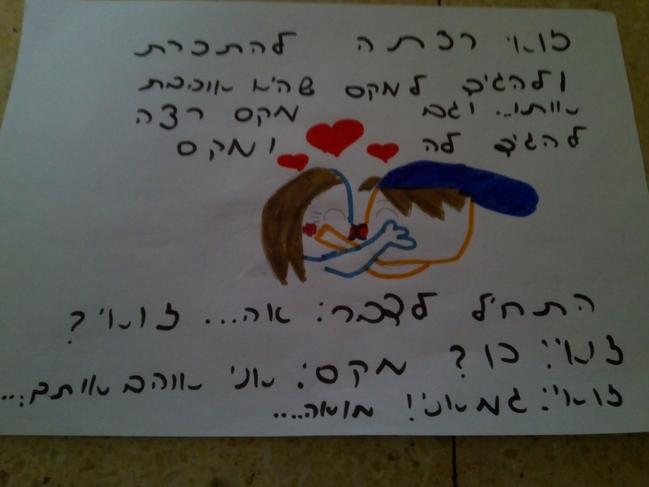 זואי רצתה להתכרת
ולהגיד למקס שהיא אוהבת
אותו.. וגם מקס רצה
להגיד לה ומקס
התחיל לדבר: אה... זואי?
זואי: כן? מקס: אני אוהב אותך...
זואי: גם אני! מואה....